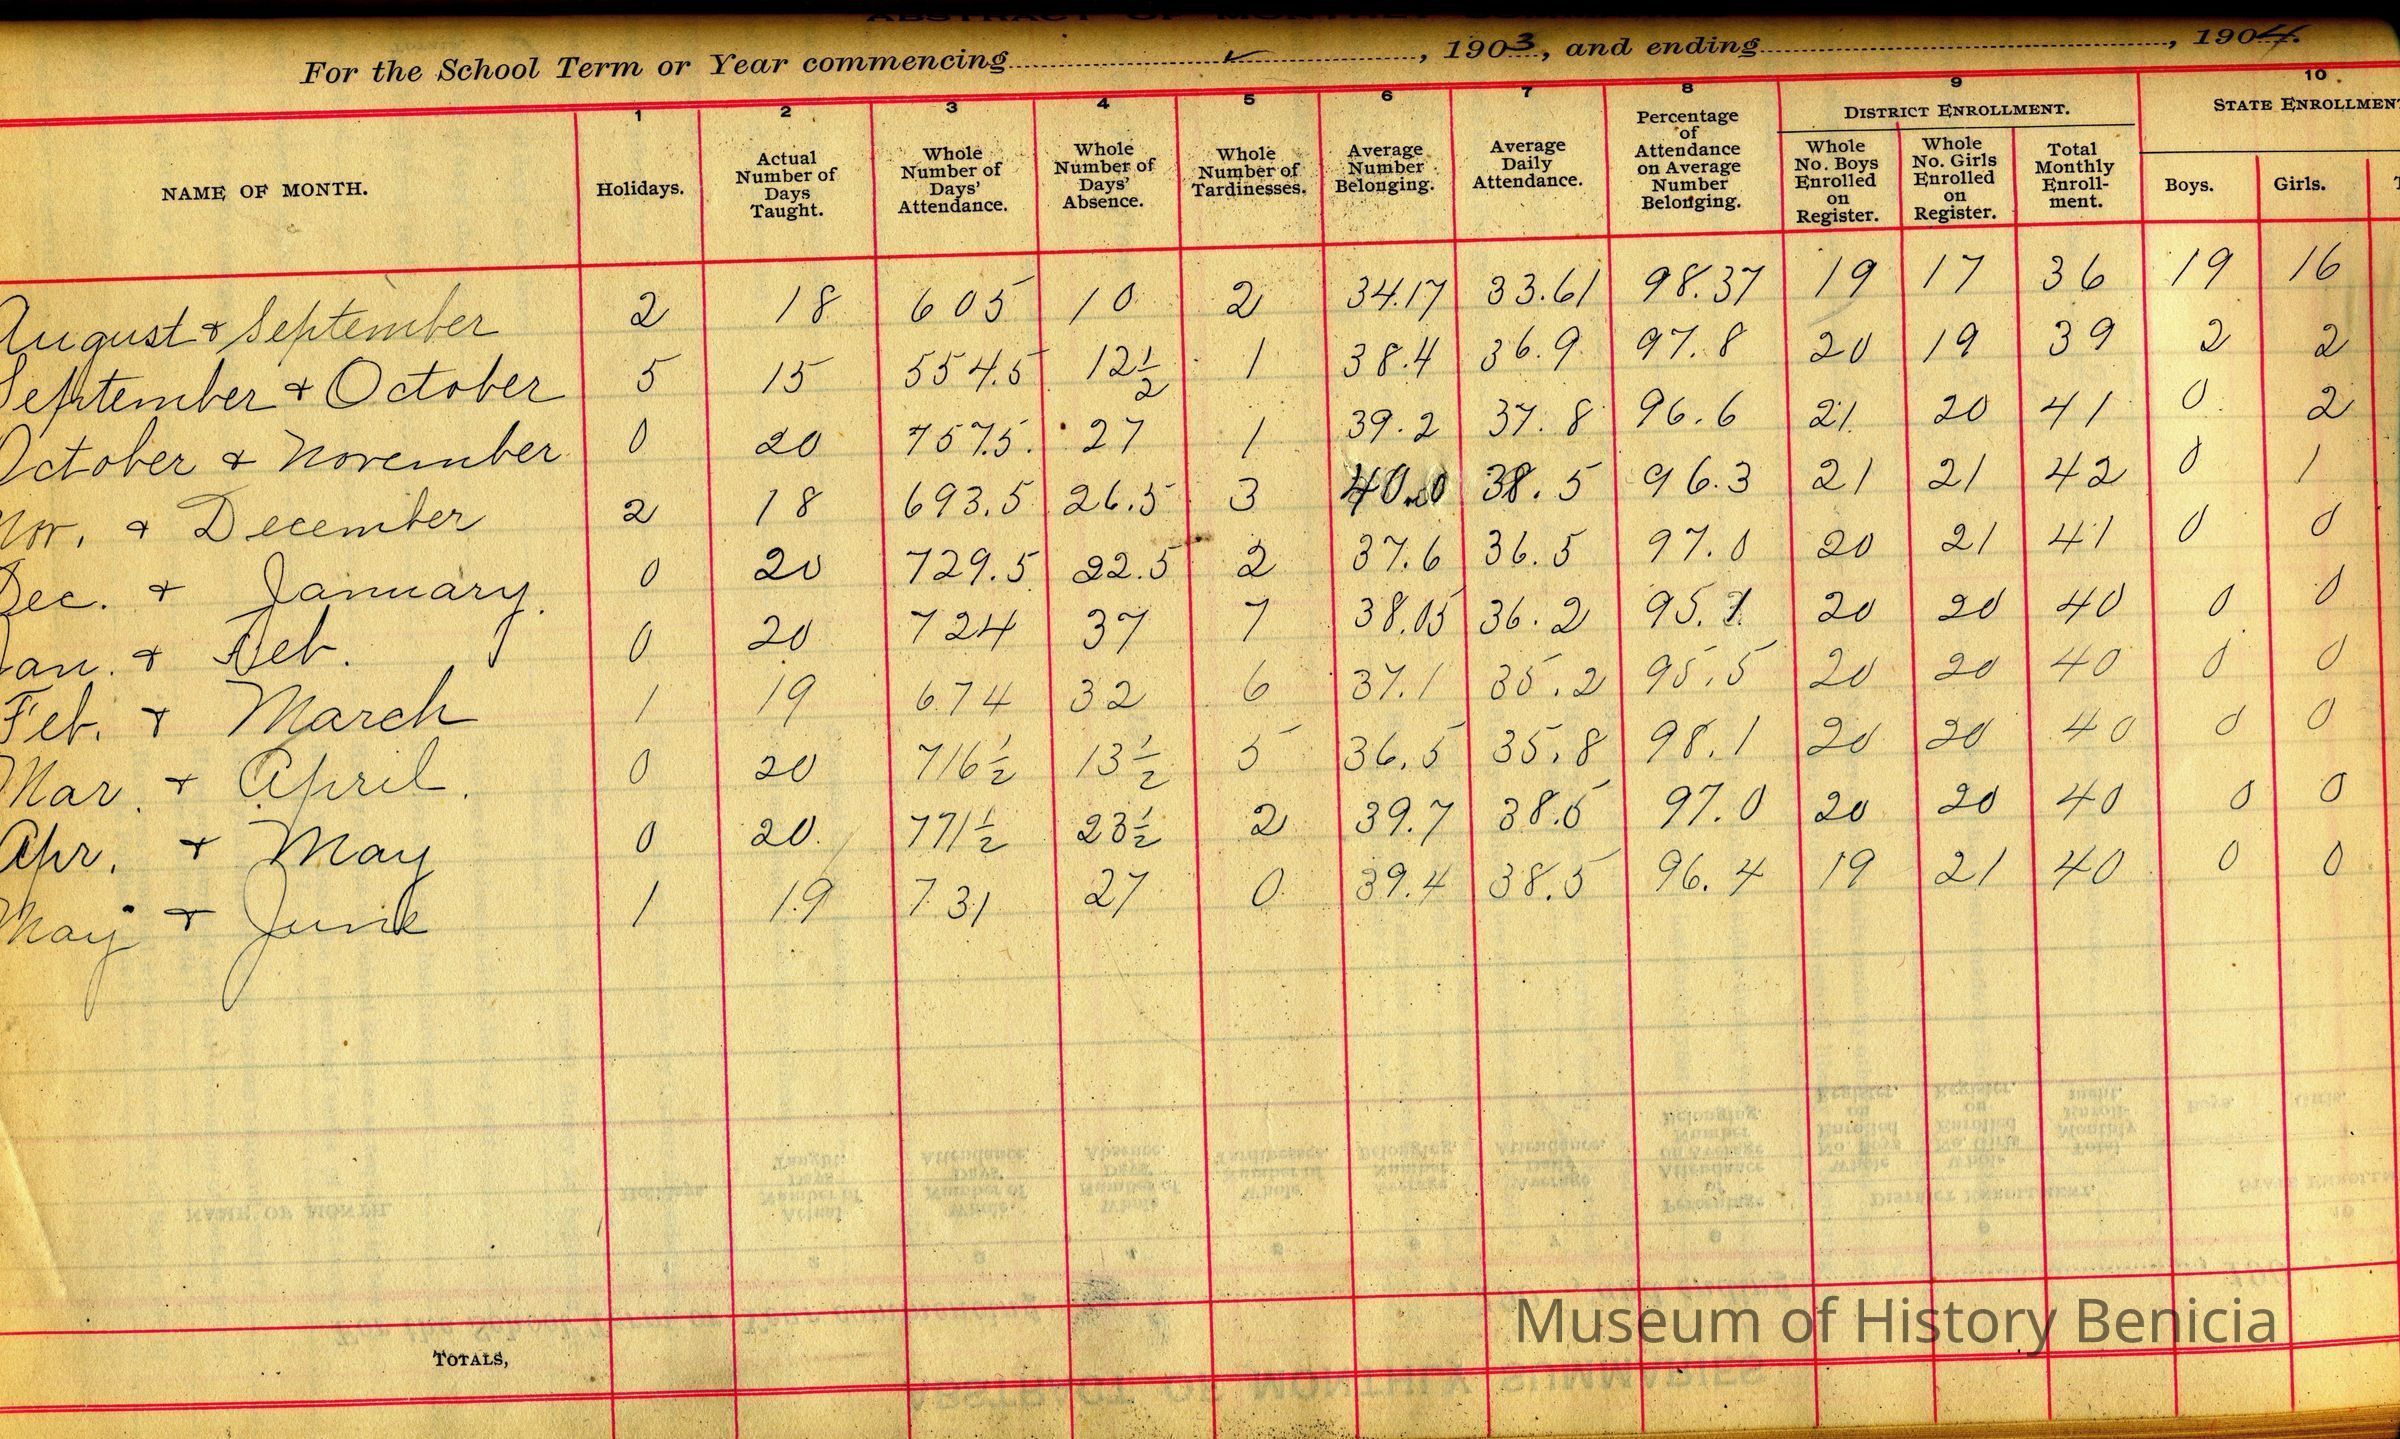 ABSTRACT OF MONTHLY
For the School Term or Year commencing ✓, 1903, and ending, 1904.
1 2 3 4 5 6 7 8 9 10
NAME OF MONTH. Holidays. Actual Number of Days Taught. Whole Number of Days' Attendance. Whole Number of Days' Absence. Whole Number of Tardinesses. Average Number Belonging. Average Daily Attendance. Percentage of Attendance on Average Number Belonging. DISTRICT ENROLLMENT. Whole No. Boys Enrolled on Register. Whole No. Girls Enrolled on Register. Total Monthly Enroll-ment. STATE ENROLLMENT Boys. Girls.
August & September 2 18 605 10 2 34.17 33.61 98.37 19 17 36 19 16
September & October 5 15 554.5 12½ 1 38.4 36.9 97.8 20 19 39 2 2
October & November 0 20 757.5. 27 1 39.2 37.8 96.6 21 20 41 0 2
Nov. & December 2 18 693.5 26.5 3 40.0 38.5 96.3 21 21 42 0 1
Dec. & January. 0 20 729.5 22.5 2 37.6 36.5 97.0 20 21 41 0 0
Jan. & Feb. 0 20 724 37 7 38.05 36.2 95.1 20 20 40 0 0
Feb. & March 1 19 674 32 6 37.1 35.2 95.5 20 20 40 0 0
Mar. & April. 0 20 716½ 13½ 5 36.5 35.8 98.1 20 20 40 0 0
Apr. & May 0 20. 771½ 23½ 2 39.7 38.5 97.0 20 20 40 0 0
May & June 1 19 731 27 0 39.4 38.5 96.4 19 21 40 0 0
TOTALS,
Museum of History Benicia